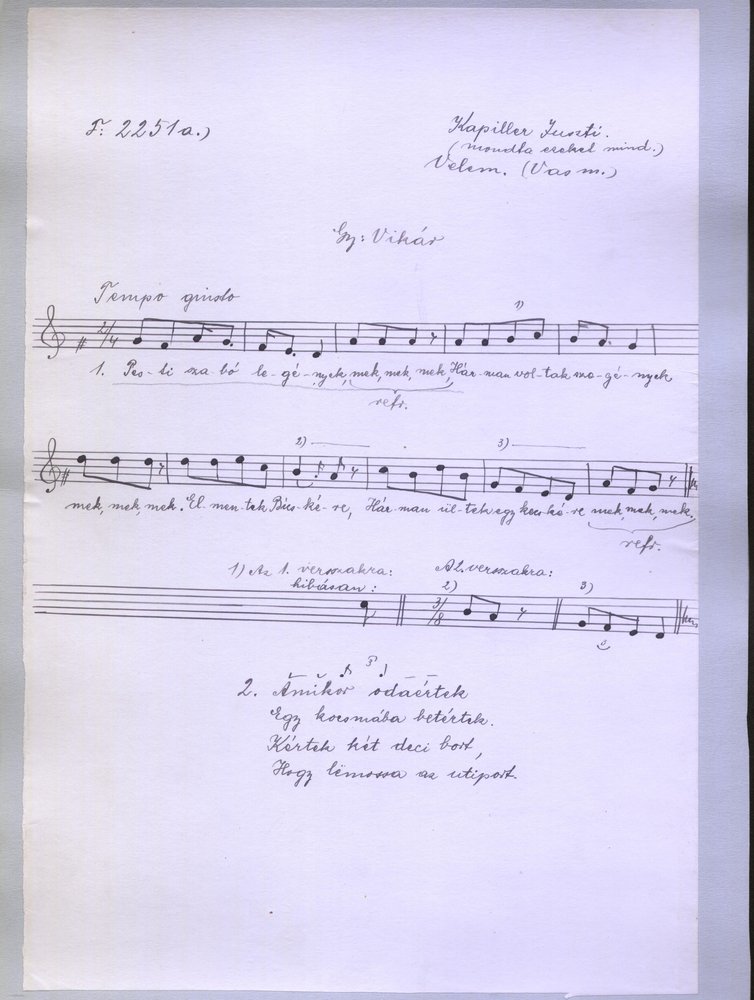 F. 2251a.)
Kapiller Juszti.
(mondta ezeket mind.)
Velem. (Vas m.)
Gy: Vikár
Tempo giusto
2/4
1)
1. Pes-ti sza-bó le-gé-nyek, mek, mek, mek, Hár-man vol-tak sze-gé-nyek
refr.
2) 3)
mek, mek, mek. El-men-tek Bécs-ké-re, Hár-man ül-tek egy kecs-ké-re mek, mek, mek.
refr.
1) Az 1. versszakra: A 2. versszakra:
hibásan: 2) 3)
3/8
3
2. Amikor odaértek
Egy kocsmába betértek.
Kértek két deci bort,
Hogy lëmossa az utiport.